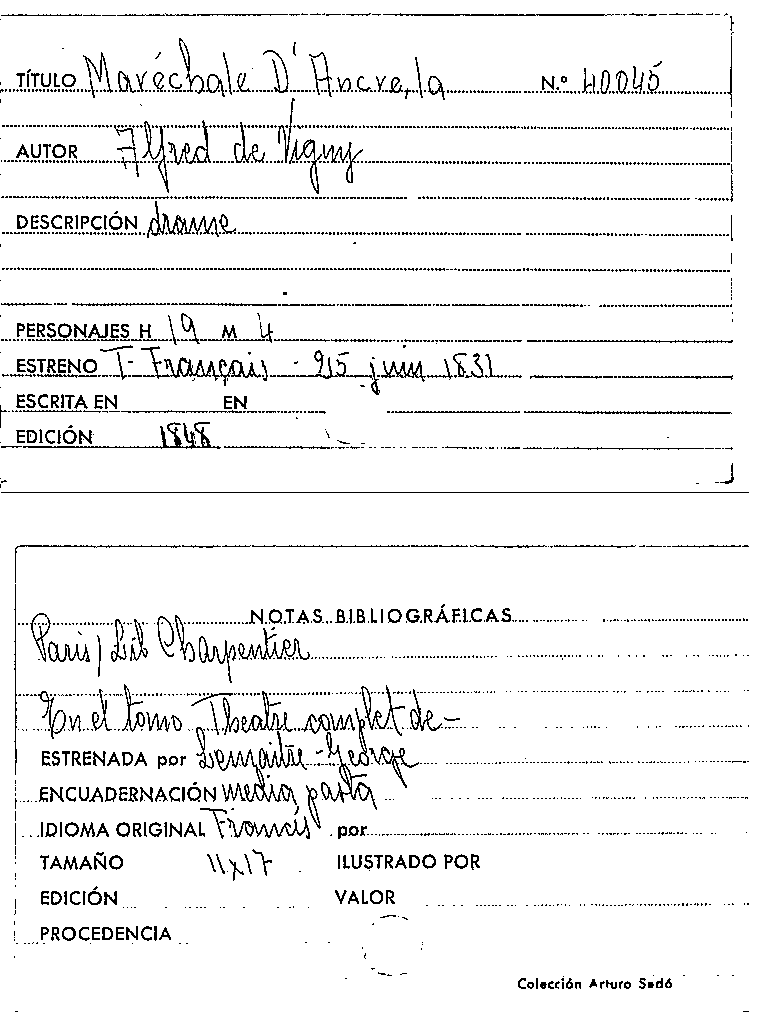 TÍTULO Maréchale D'Ancre, la N.º 40045
AUTOR Alfred de Vigny
DESCRIPCIÓN drame
PERSONAJES H 19 M 4
ESTRENO T- Français - 25 juin 1831
ESCRITA EN EN
EDICIÓN 1848
NOTAS BIBLIOGRÁFICAS
Paris / Lib Charpentier
En el tomo Theatre complet de -
ESTRENADA por Lemaitre - George
ENCUADERNACIÓN media pasta
IDIOMA ORIGINAL Francés por
TAMAÑO 11x17 ILUSTRADO POR
EDICIÓN VALOR
PROCEDENCIA
Colección Arturo Sedó